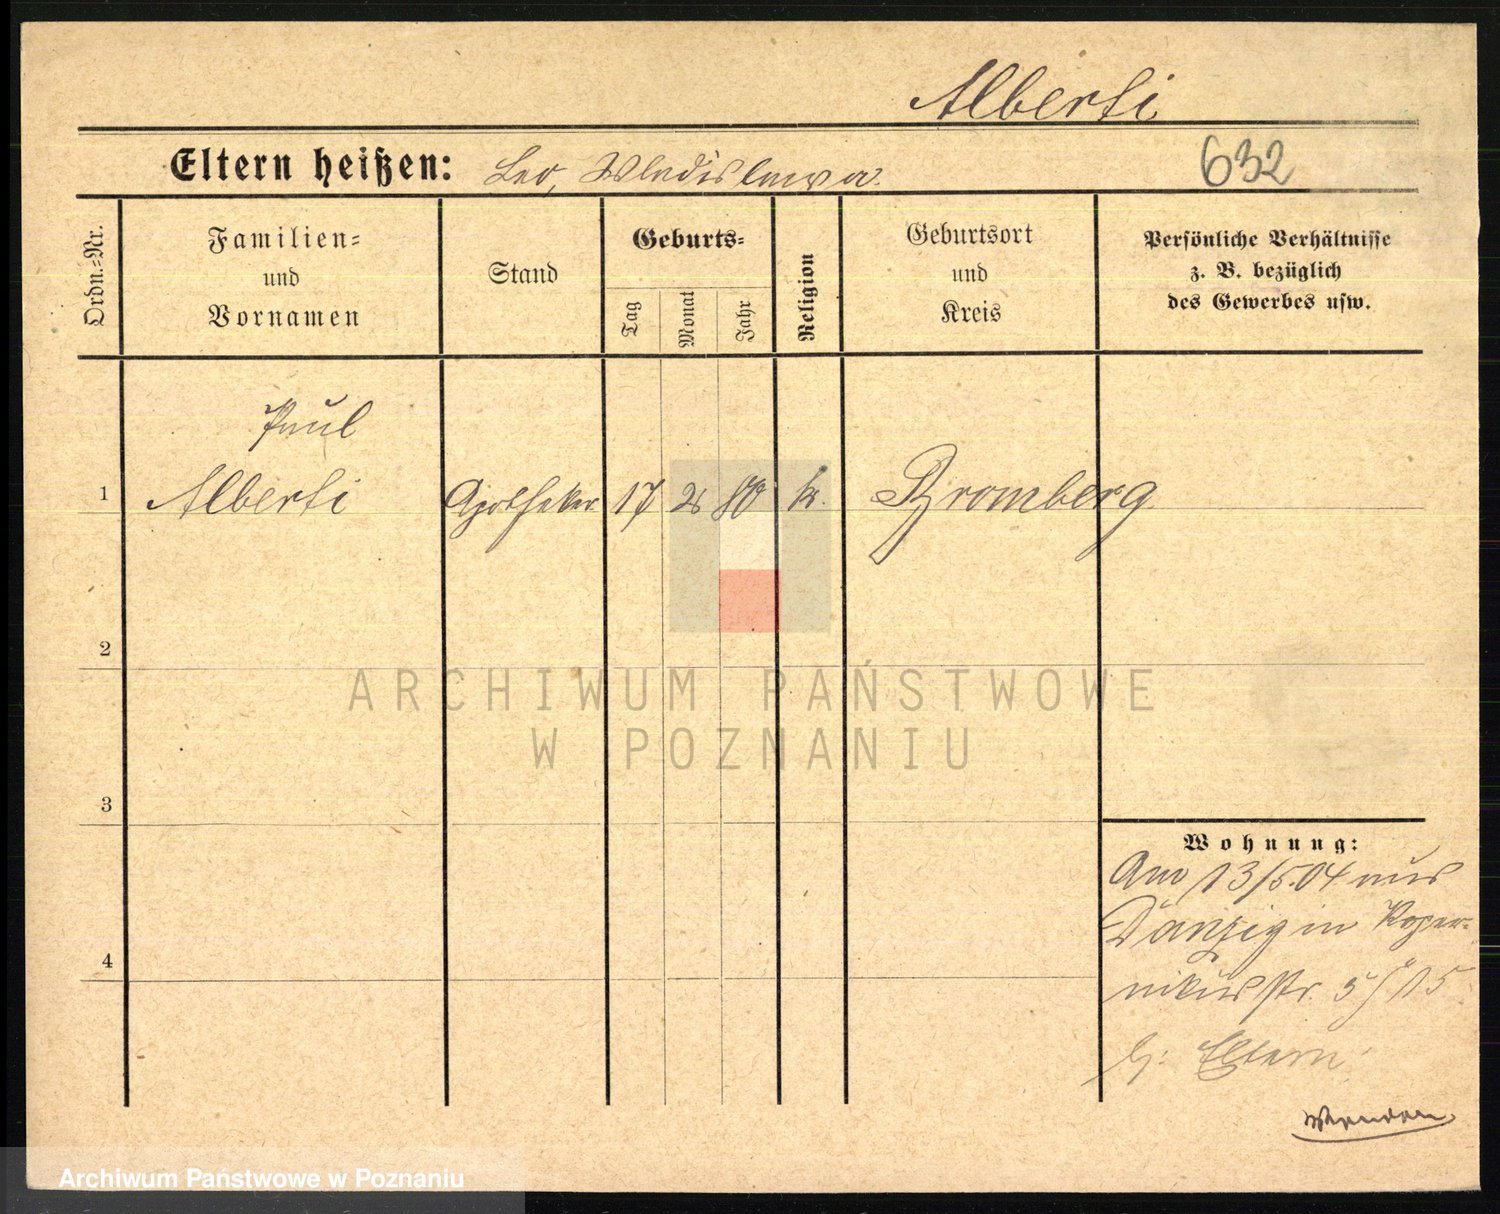 Alberti
Eltern heißen: Leo, Wladislawa.
632
Ordn.=Nr.
Familien=
und
Vornamen
Stand
Geburts=
Tag
Monat
Jahr
Religion
Geburtsort
und
Kreis
Persönliche Verhältnisse
z. B. bezüglich
des Gewerbes usw.
Paul
1 Alberti Apotheker 17 2 80 k. Bromberg
2
3
4
Wohnung:
Am 13/5.04 aus
Danzig in Koper-
nikusstr. 5/15
b: Eltern
Wenden
ARCHIWUM PAŃSTWOWE
W POZNANIU
Archiwum Państwowe w Poznaniu